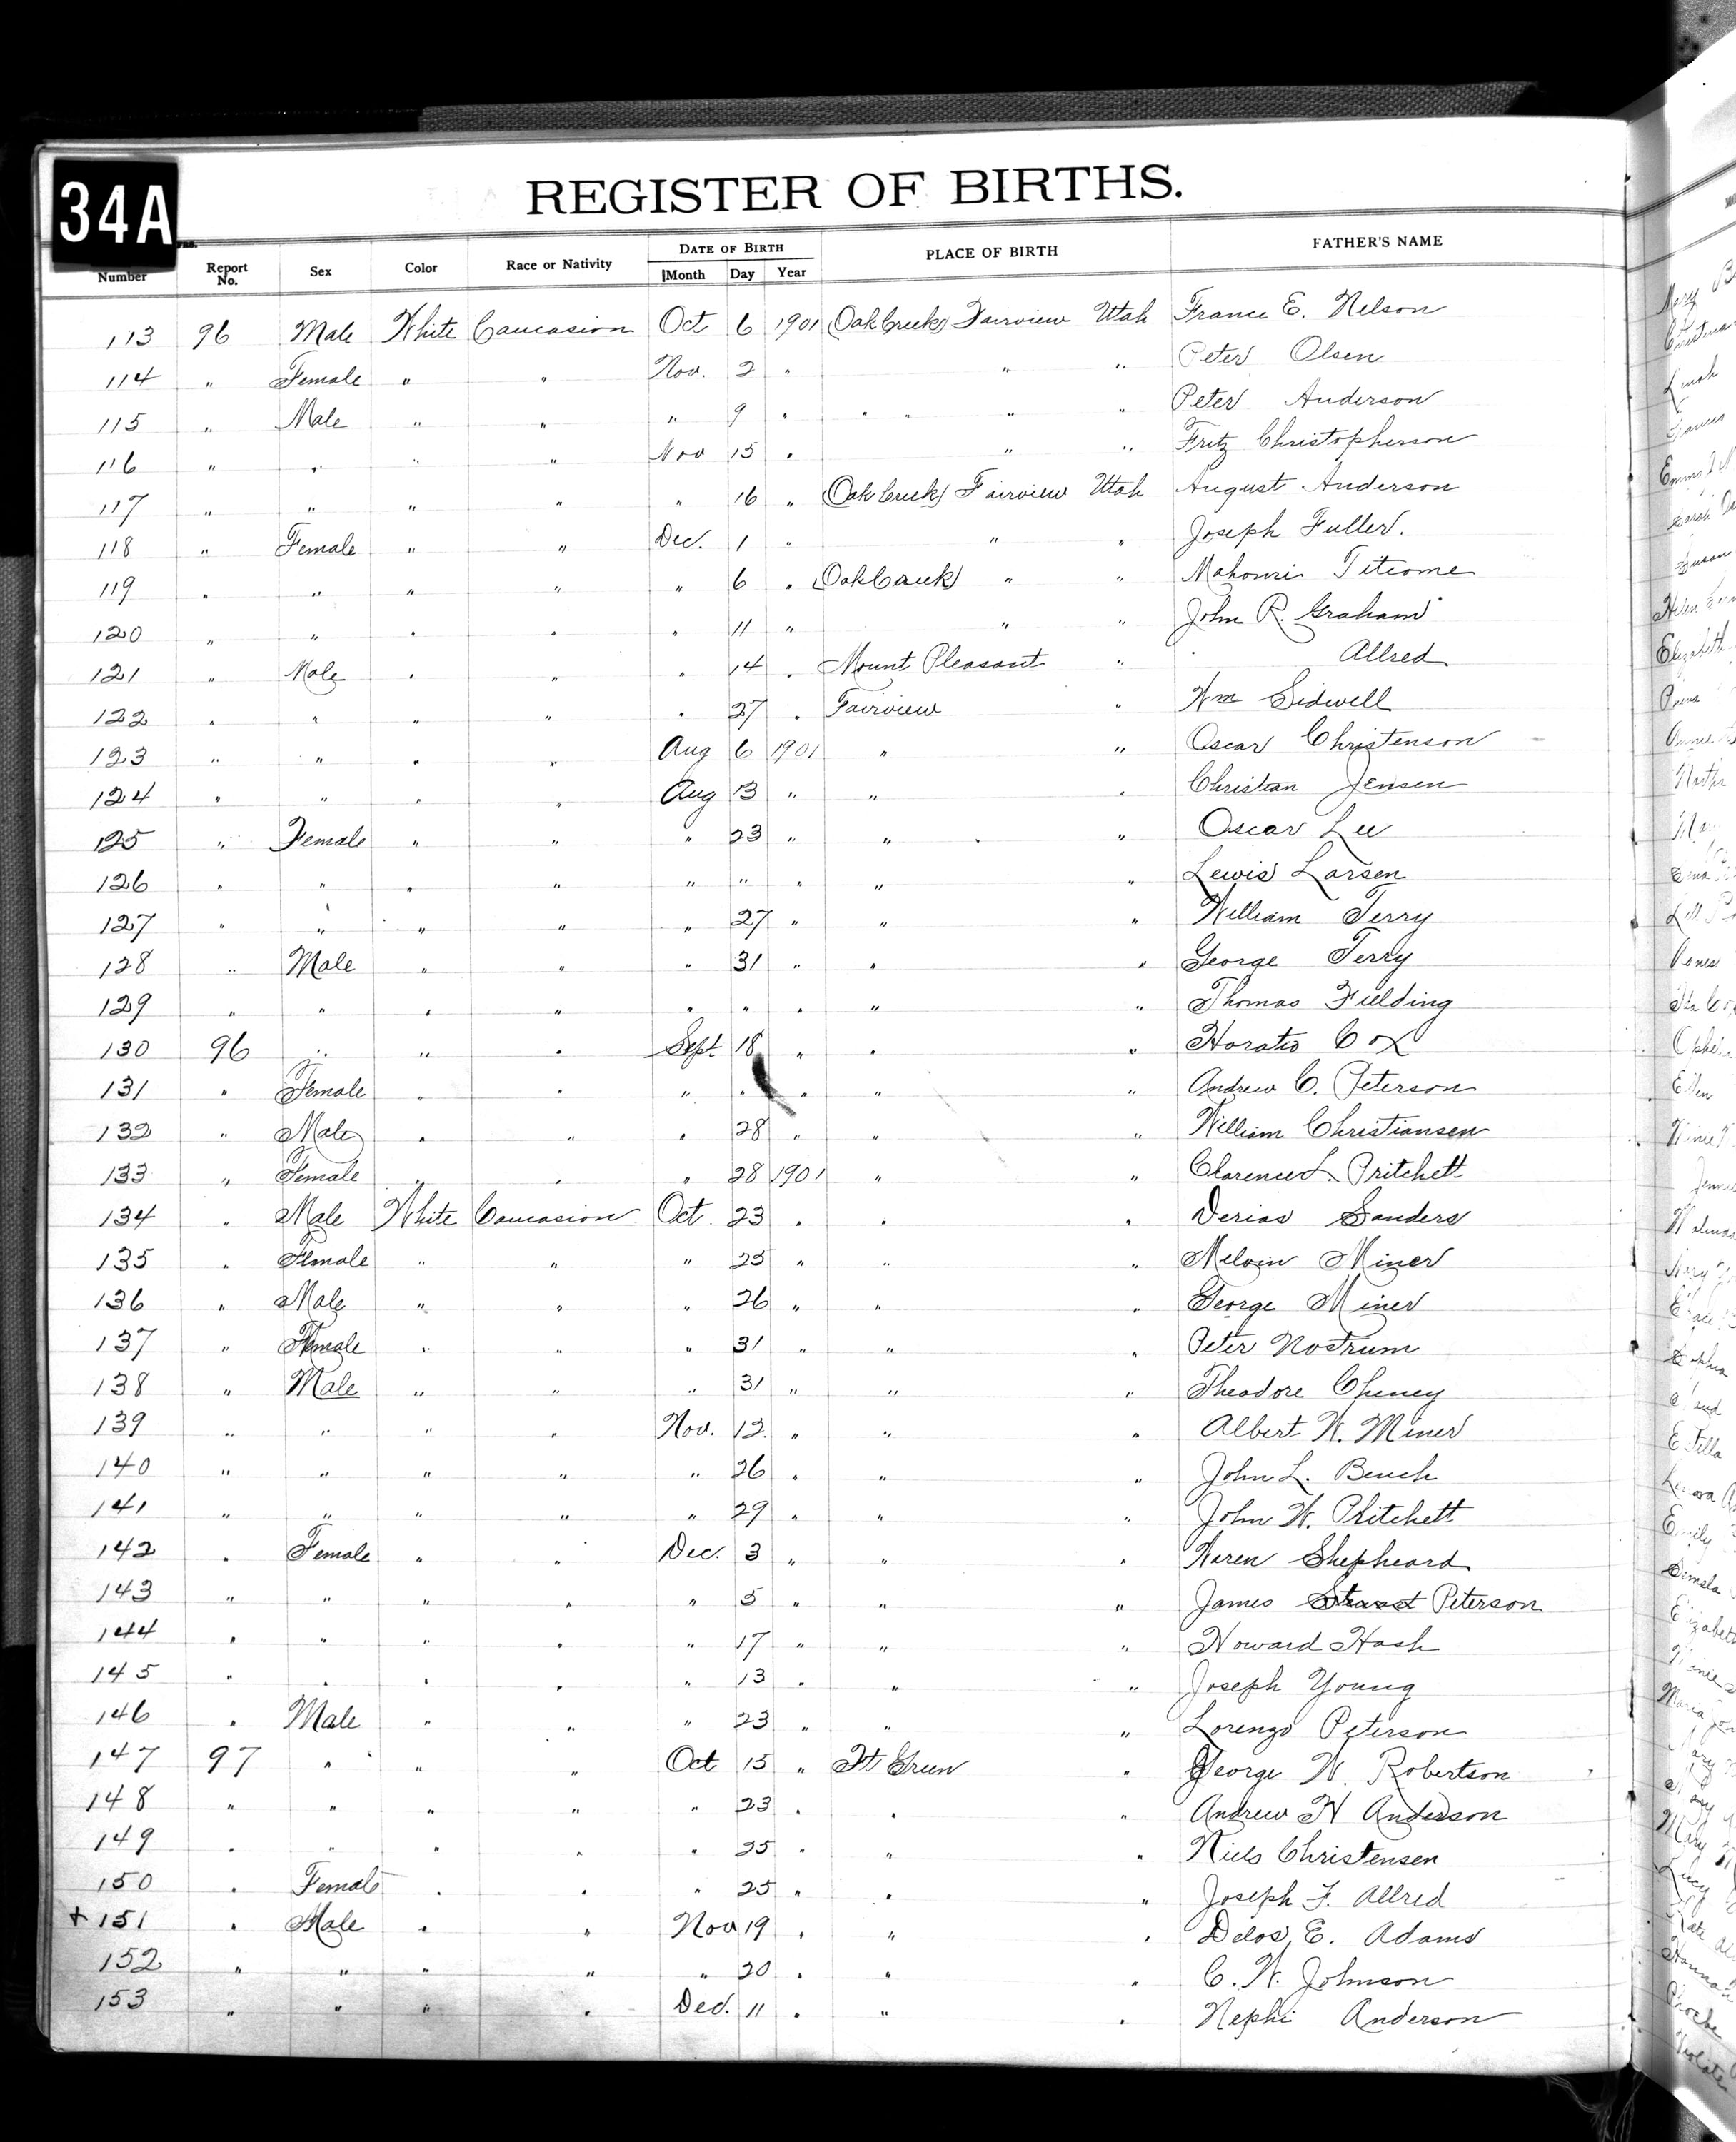 34A
REGISTER OF BIRTHS.
Number Report No. Sex Color Race or Nativity DATE OF BIRTH Month Day Year PLACE OF BIRTH FATHER'S NAME
113 96 Male White Caucasion Oct 6 1901 (Oak Creek) Fairview Utah France E. Nelson
114 " Female " " Nov. 2 " " " Peter Olsen
115 " Male " " " 9 " " " " " Peter Anderson
116 " " " " Nov 15 " " " Fritz Christopherson
117 " " " " " 16 " (Oak Creek) Fairview Utah August Anderson
118 " Female " " Dec. 1 " " " Joseph Fuller.
119 " " " " " 6 " (Oak Creek) " " Mahonri Titcome
120 " " " " " 11 " " " John R. Graham
121 " Male " " " 14 " Mount Pleasant " Allred
122 " " " " " 27 " Fairview " Wm Sidwell
123 " " " " Aug 6 1901 " " Oscar Christenson
124 " " " " Aug 13 " " " Christian Jensen
125 " Female " " " 23 " " " Oscar Lee
126 " " " " " " " " " Lewis Larsen
127 " " " " " 27 " " " William Terry
128 " Male " " " 31 " " " George Terry
129 " " " " " " " " " Thomas Fielding
130 96 " " " Sept 18 " " " Horatio Cox
131 " Female " " " " " " " Andrew C. Peterson
132 " Male " " " 28 " " " William Christiansen
133 " Female " " " 28 1901 " " Clarence L. Pritchett
134 " Male White Caucasion Oct. 23 " " " Derias Sanders
135 " Female " " " 25 " " " Melvin Miner
136 " Male " " " 26 " " " George Miner
137 " Female " " " 31 " " " Peter Nostrum
138 " Male " " " 31 " " " Theodore Cheney
139 " " " " Nov. 12 " " " Albert W. Miner
140 " " " " " 26 " " " John L. Bench
141 " " " " " 29 " " " John W. Pritchett
142 " Female " " Dec. 3 " " " Waren Shepheard
143 " " " " " 5 " " " James Peterson
144 " " " " " 17 " " " Howard Hash
145 " " " " " 13 " " " Joseph Young
146 " Male " " " 23 " " " Lorenzo Peterson
147 97 " " " Oct 15 " Ft Green " George W. Robertson
148 " " " " " 23 " " " Andrew H Anderson
149 " " " " " 25 " " " Niels Christensen
150 " Female " " " 25 " " " Joseph F. Allred
+ 151 " Male " " Nov 19 " " " Delos E. Adams
152 " " " " " 20 " " " C. W. Johnson
153 " " " " Dec. 11 " " " Nephi Anderson